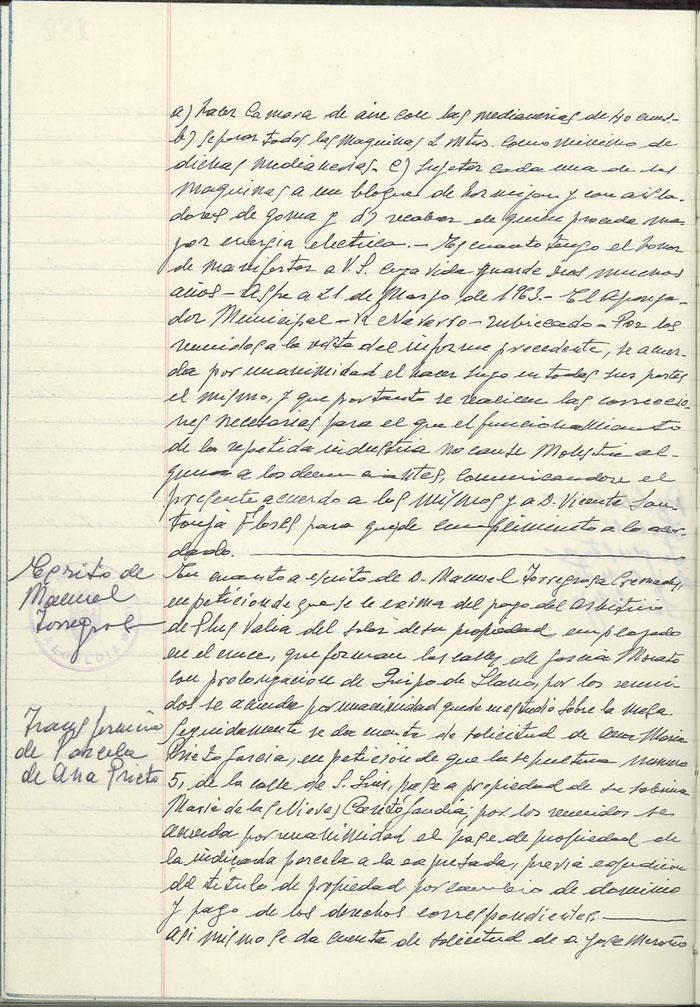 a) hacer Camara de aire con las medianerias de 40 cms.-
b) separar todas las Maquinas 2 mtrs. como minimo de
dichas medianerias.- C) Sujetar cada una de las
Maquinas a un bloque de hormigon y con aisla-
dores de goma y d) recabar de quien proceda ma-
yor energia electrica.- Es cuanto tengo el honor
de manifestar a V.S. cuya vida guarde Dios muchos
años - Aspe a 21 de Marzo de 1963.- El Apareja-
dor Municipal - Navarro - Rubricado - Por los
reunidos a la vista del informe precedente, se acuer-
da por unanimidad el hacer suyo en todas sus partes
el mismo, y que por tanto se realicen las correccio-
nes necesarias para el que el funcionamiento
de la repetida industria no cause Molestia al-
guna a los denunciantes, comunicandose el
presente acuerdo a los mismos y a D. Vicente San-
tonja Flores para que de cumplimiento a lo acor-
dado.
Escrito de
Manuel
Torregrosa
ALCALDIA
En cuanto a escrito de D. Manuel Torregrosa
en peticion de que se le exima del pago del Arbitrio
de Plus Valia del solar de su propiedad, emplazado
en el cruce, que forman las calles de Garcia Morato
con prolongacion de Queipo de Llano, por los reuni-
dos se acuerda por unanimidad quede en estudio sobre la mesa
Transferencia
de Parcela
de Ana Prieto
Seguidamente se da cuenta de solicitud de Ana Maria
Prieto Garcia, en peticion de que la sepultura numero
5, de la calle de S. Luis, pase a propiedad de su sobrina
Maria de las Nieves por los reunidos se
acuerda por unanimidad el pase de propiedad de
la indicada parcela a la expresada, previa expedicion
del titulo de propiedad por cambio de dominio
y pago de los derechos correspondientes.
Asi mismo se da cuenta de solicitud de Jose